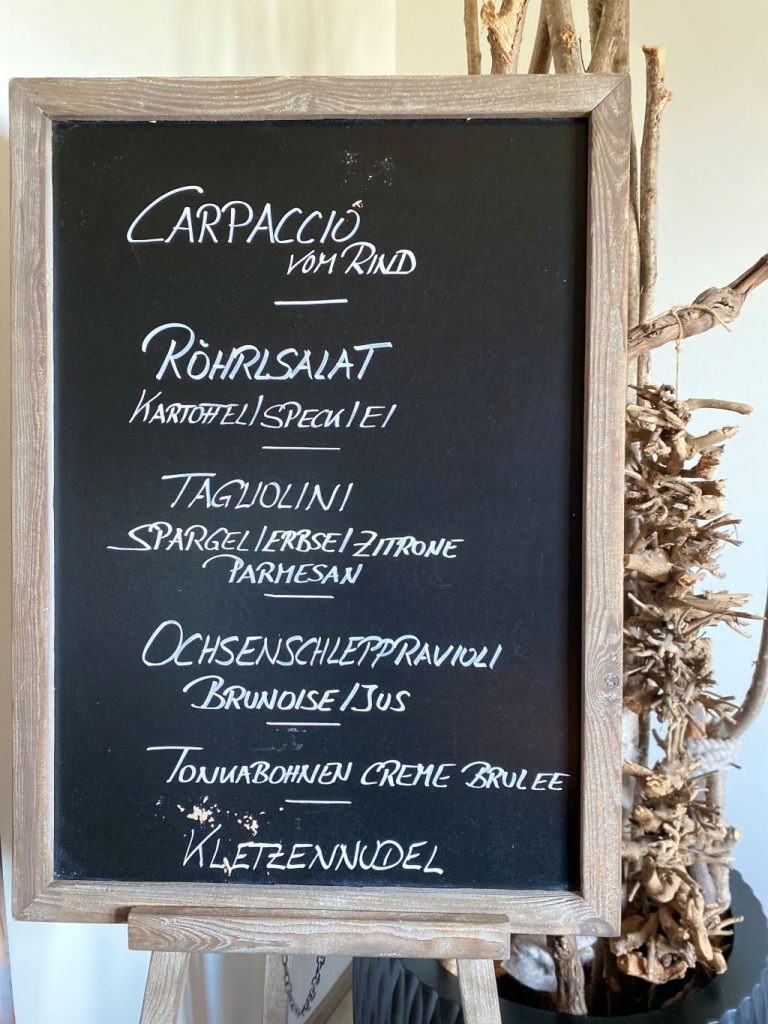 CARPACCIO
VOM RIND
RÖHRLSALAT
KARTOFFEL/SPECK/EI
TAGLIOLINI
SPARGEL/ERBSE/ZITRONE
PARMESAN
OCHSENSCHLEPPRAVIOLI
BRUNOISE/JUS
TONKABOHNEN CREME BRULEE
KLETZENNUDEL